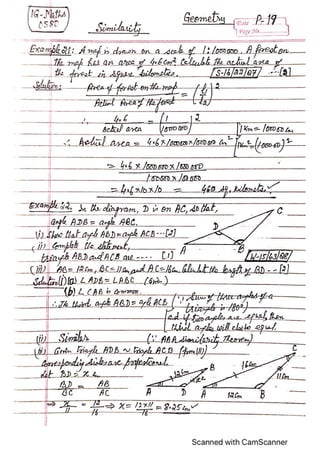 IG-Maths
0580
Geometry
P-19
Date
Page No.
Similarity
Example 21: A map is drawn on a scale of 1:1000000. A forest on
the map has an area of 4.6 cm². Calculate the actual area of
the forest in square kilometres. [S-16/22/Q7] --[2]
Solution: Area of forest on the map / Actual Area of the forest = (l₁/l₂)²
∴ 4.6 / actual area = (1/1000000)²
1 km = 100000 cm
∴ Actual area = 4.6 × 1000000 × 1000000 cm²
1 km² = (100000)²
= 4.6 × 1000000 × 1000000 / 100000 × 100000
= 4.6 × 10 × 10 = 460 sq. kilometer ✓
Example 22: In the diagram, D is on AC, so that,
angle ADB = angle ABC.
(i) Show that angle ABD = angle ACB --[2]
(ii) Complete the statement,
triangle ABD and ACB are ---- [1]
C
D
A
B
(iii) AB = 12m, BC = 11m and AC = 16m. Calculate the length of BD -- [2]
Solution (i) (a) ∠ADB = ∠ABC (Given)
(b) ∠CAB is common
∴ The third angle ABD = angle ACB
(∵ Sum of three angles of a
triangle is 180°)
and if two angles are equal, then
third angle will also be equal.
(ii) Similar (∵ AAA similarity Theorem)
(iii) Given Triangle ABD ~ Triangle ACB (from (ii))
∴ Corresponding sides are proportional
let BD = x m
BD / BC = AB / AC
A
D
B
12m
x m
C
16m
11m
A
12m
B
⇒ x/11 = 12/16 ⇒ x = 12×11/16 = 8.25 m ✓
Scanned with CamScanner